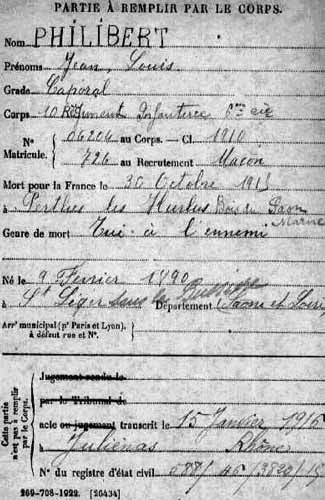 PARTIE À REMPLIR PAR LE CORPS.
Nom PHILIBERT
Prénoms Jean Louis
Grade Caporal
Corps 10 Régiment Infanterie 6me cie
No 06204 au Corps. — Cl. 1910
Matricule. 726 au Recrutement Macon
Mort pour la France le 30 Octobre 1915
à Perthes les Hurlus Bois du Paon
Marne
Genre de mort Tué à l'ennemi
Né le 9 Février 1890
à St Léger sous la Bussière Département Saone et Loire
Arrt municipal (pr Paris et Lyon),
à défaut rue et No.
Cette partie
n'est pas à remplir
par le Corps.
Jugement rendu le
par le Tribunal de
acte ou jugement transcrit le 15 Janvier 1916
à Juliénas Rhône
No du registre d'état civil
269-708-1922. [26434]